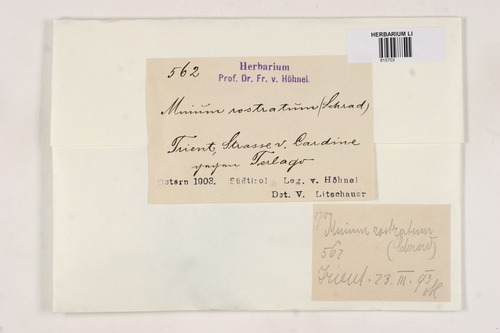 HERBARIUM LI
562
Herbarium
Prof. Dr. Fr. v. Höhnel.
Mnium rostratum (Schrad)
Trient, Strasse v. Cardine
gegen Terlago
Ostern 1903. Südtirol Leg. v. Höhnel
Det. V. Litschauer
Mnium rostratum
562 (Schrad)
Trient. 23. III.